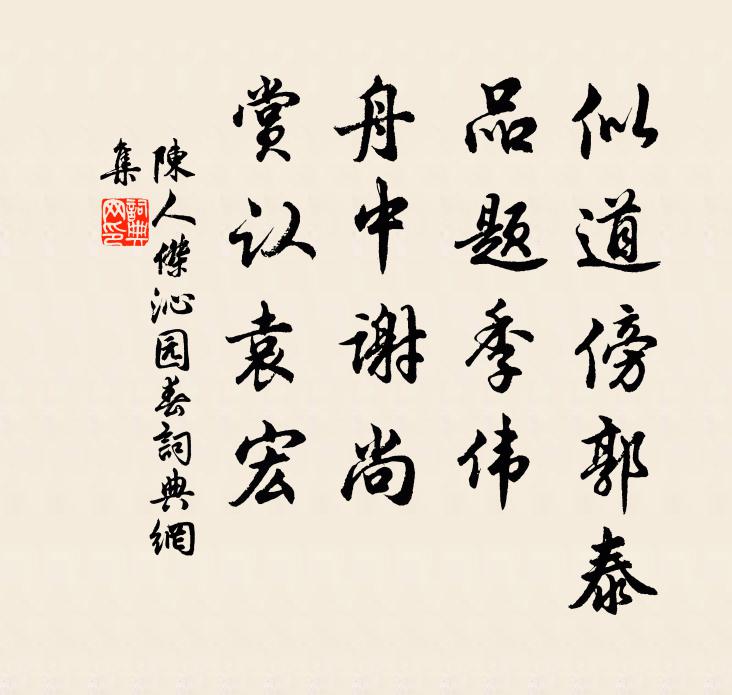 似道傍郭泰
品题季伟
舟中谢尚
赏认袁宏
陳人傑沁园春詞典網
集
詞典网印